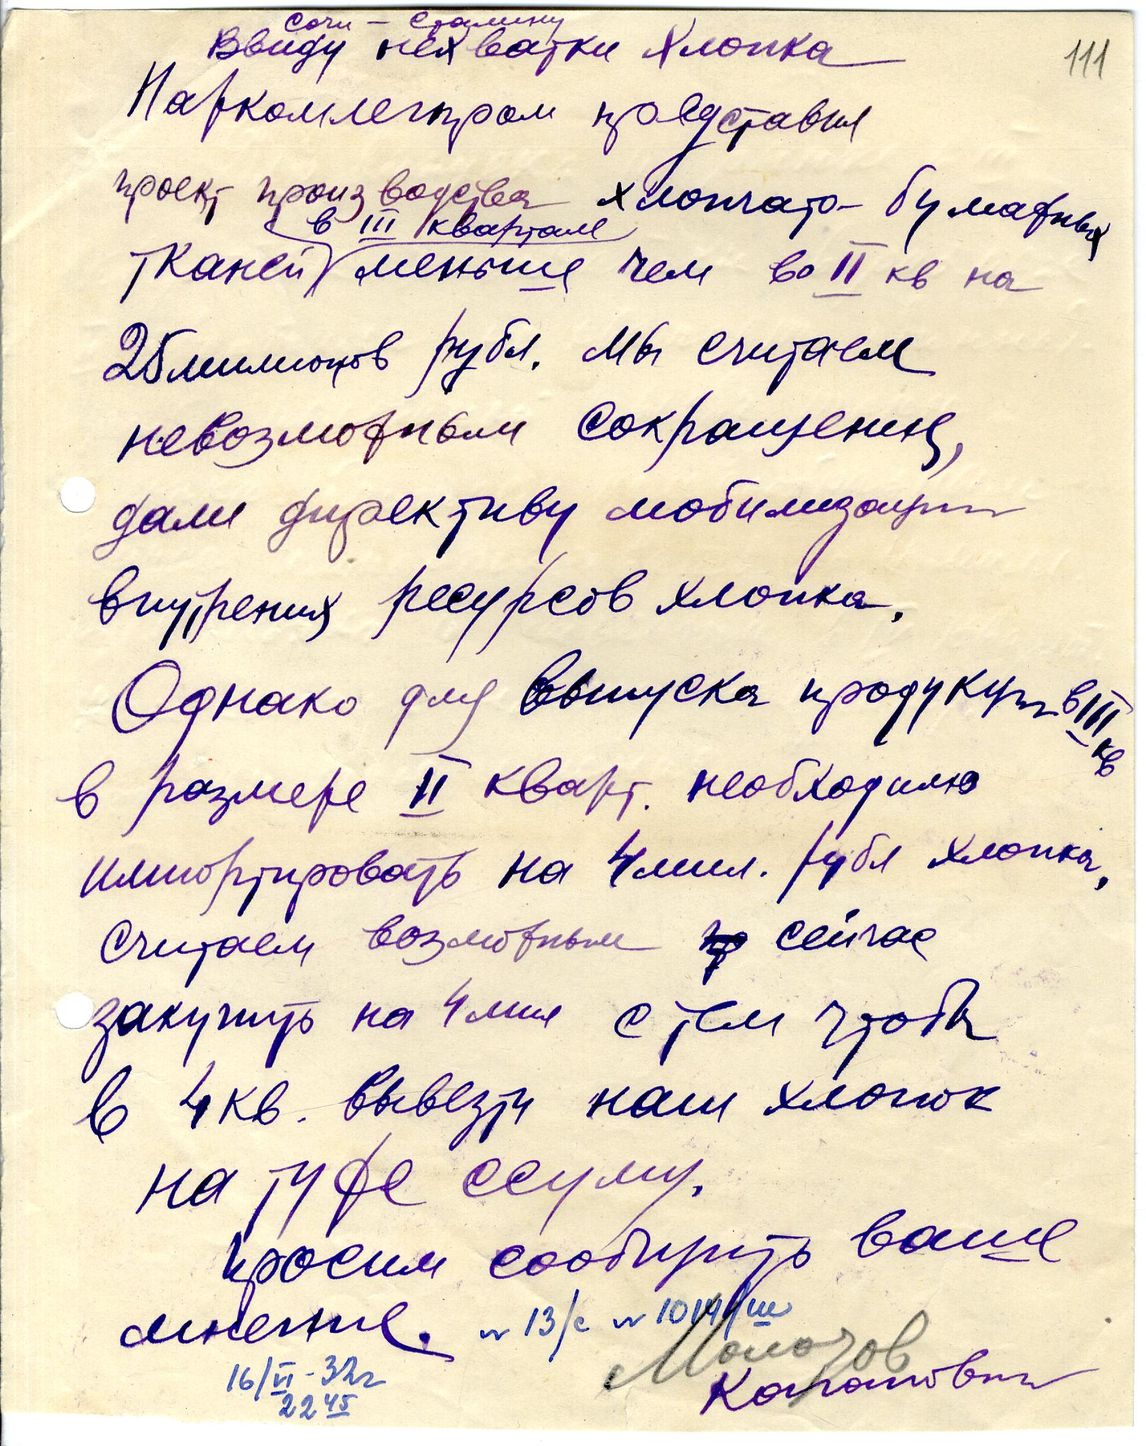 Сочи - Сталину
111
Ввиду нехватки хлопка
Наркомлегпром представил
проект производства хлопчато-бумажных
в III квартале
тканей меньше чем во II кв на
25 миллионов рубл. мы считаем
невозможным сокращение,
дали директиву мобилизации
внутрених ресурсов хлопка.
Однако для выпуска продукции в III кв
в размере II кварт. необходимо
импортировать на 4 мил. рубл хлопка,
считаем возможным сейчас
закупить на 4 мил с тем чтобы
в 4 кв. вывезти наш хлопок
на туже ссуму.
просим сообщить ваше
мнение. № 13/с № 1014/ш
Молотов
16/VI-32г Каганович
22 45